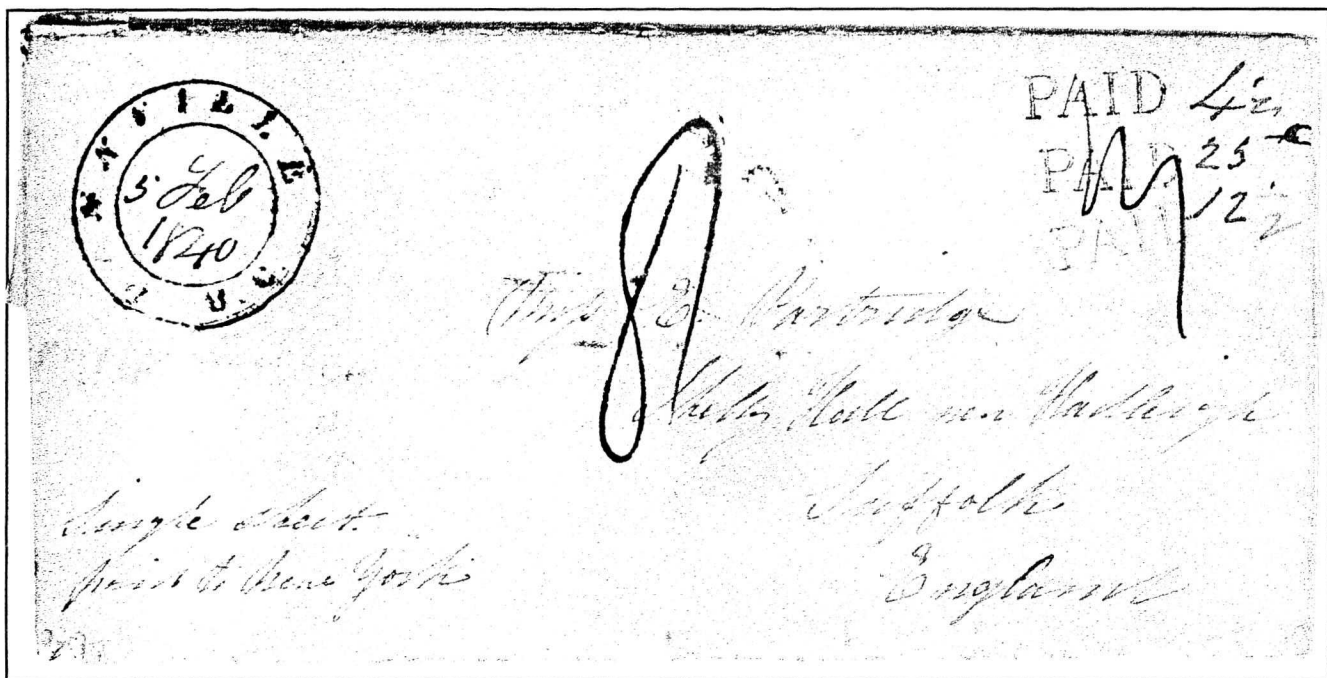 5 Feb
1840
PAID 4½
PAID 25
PAID 12½
8
E. Partridge
Shelly Hall near Hadleigh
Suffolk
England
Single sheet
paid to New York